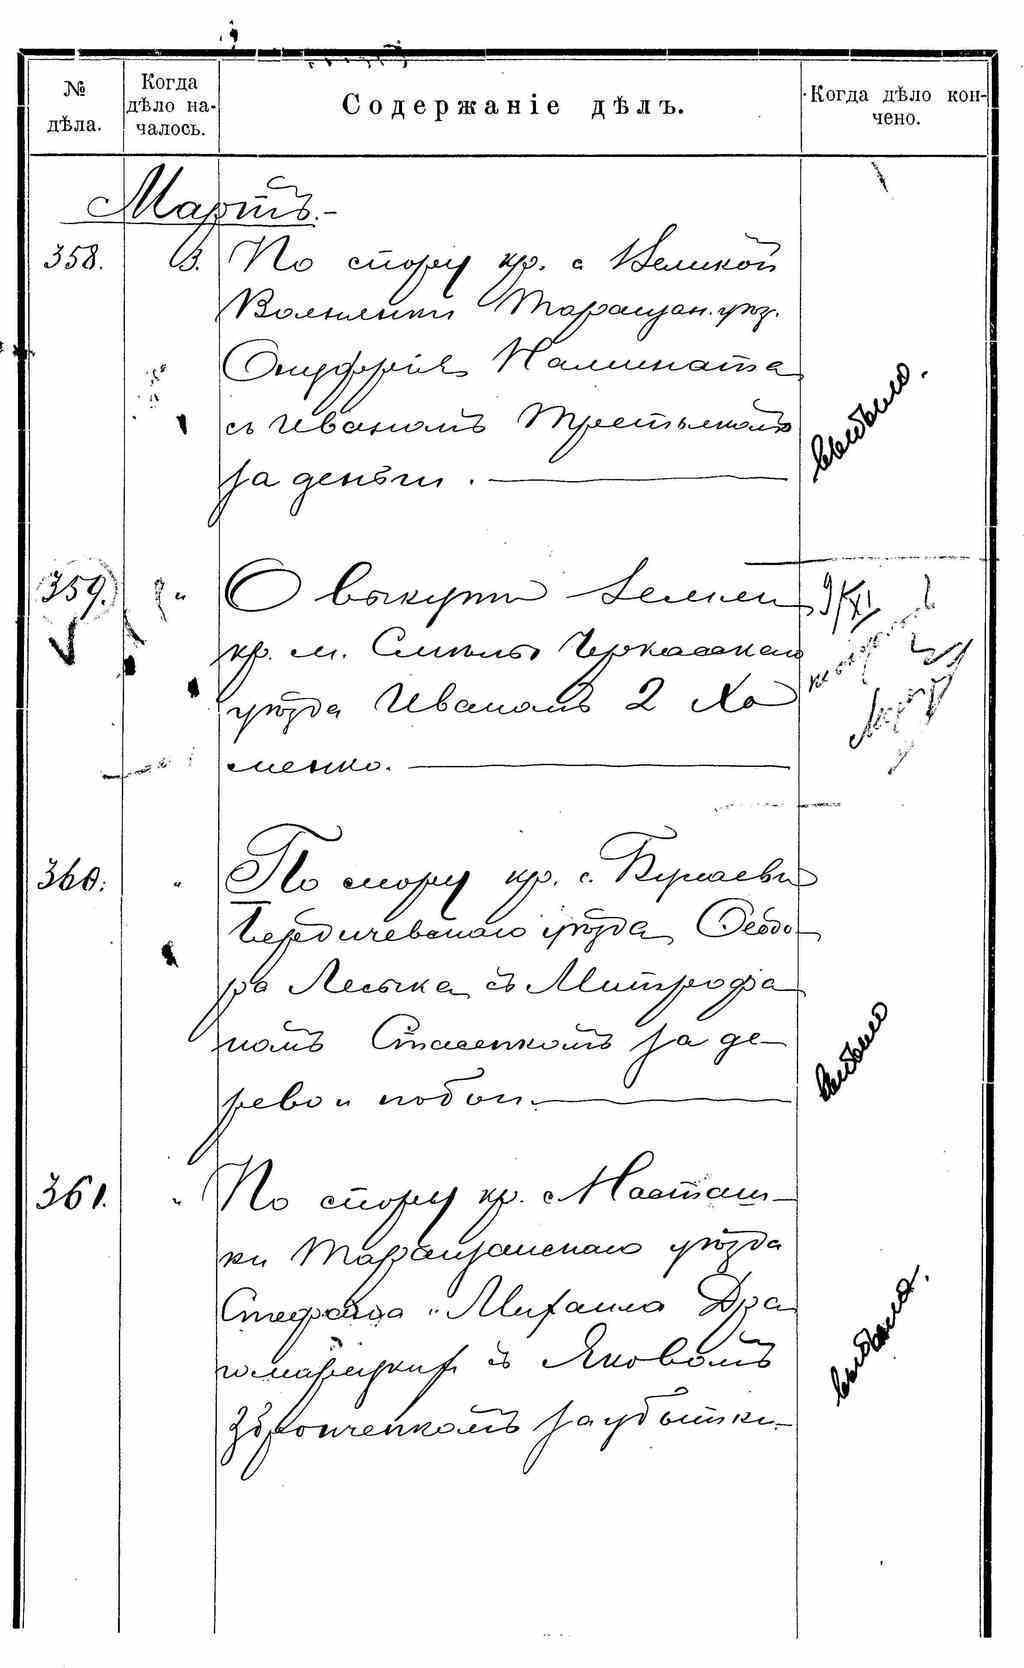 № дѣла.
Когда дѣло началось.
Содержаніе дѣлъ.
Когда дѣло кончено.
Мартъ.-
358. 3. По спору кр. с Великой
Таращан. уѣз.
Онуфрія Калината
съ Иваномъ Третьякомъ
за деньги.
выбыло.
359. " О выкупѣ земли
9/XI
кр. м. Смѣлы Черкасскаго
уѣзда Иваномъ 2 Хо
менко.
360. " По спору кр. с.
Бердичевскаго уѣзда Ѳеодо
ра Лесыка съ Митрофа
номъ за де-
рево и побои.
выбыло
361. " По спору кр. с Насташ-
ки Таращанскаго уѣзда
Стефана и Михаила Дра
гомарецких съ Яковомъ
за убытки.
выбыло.